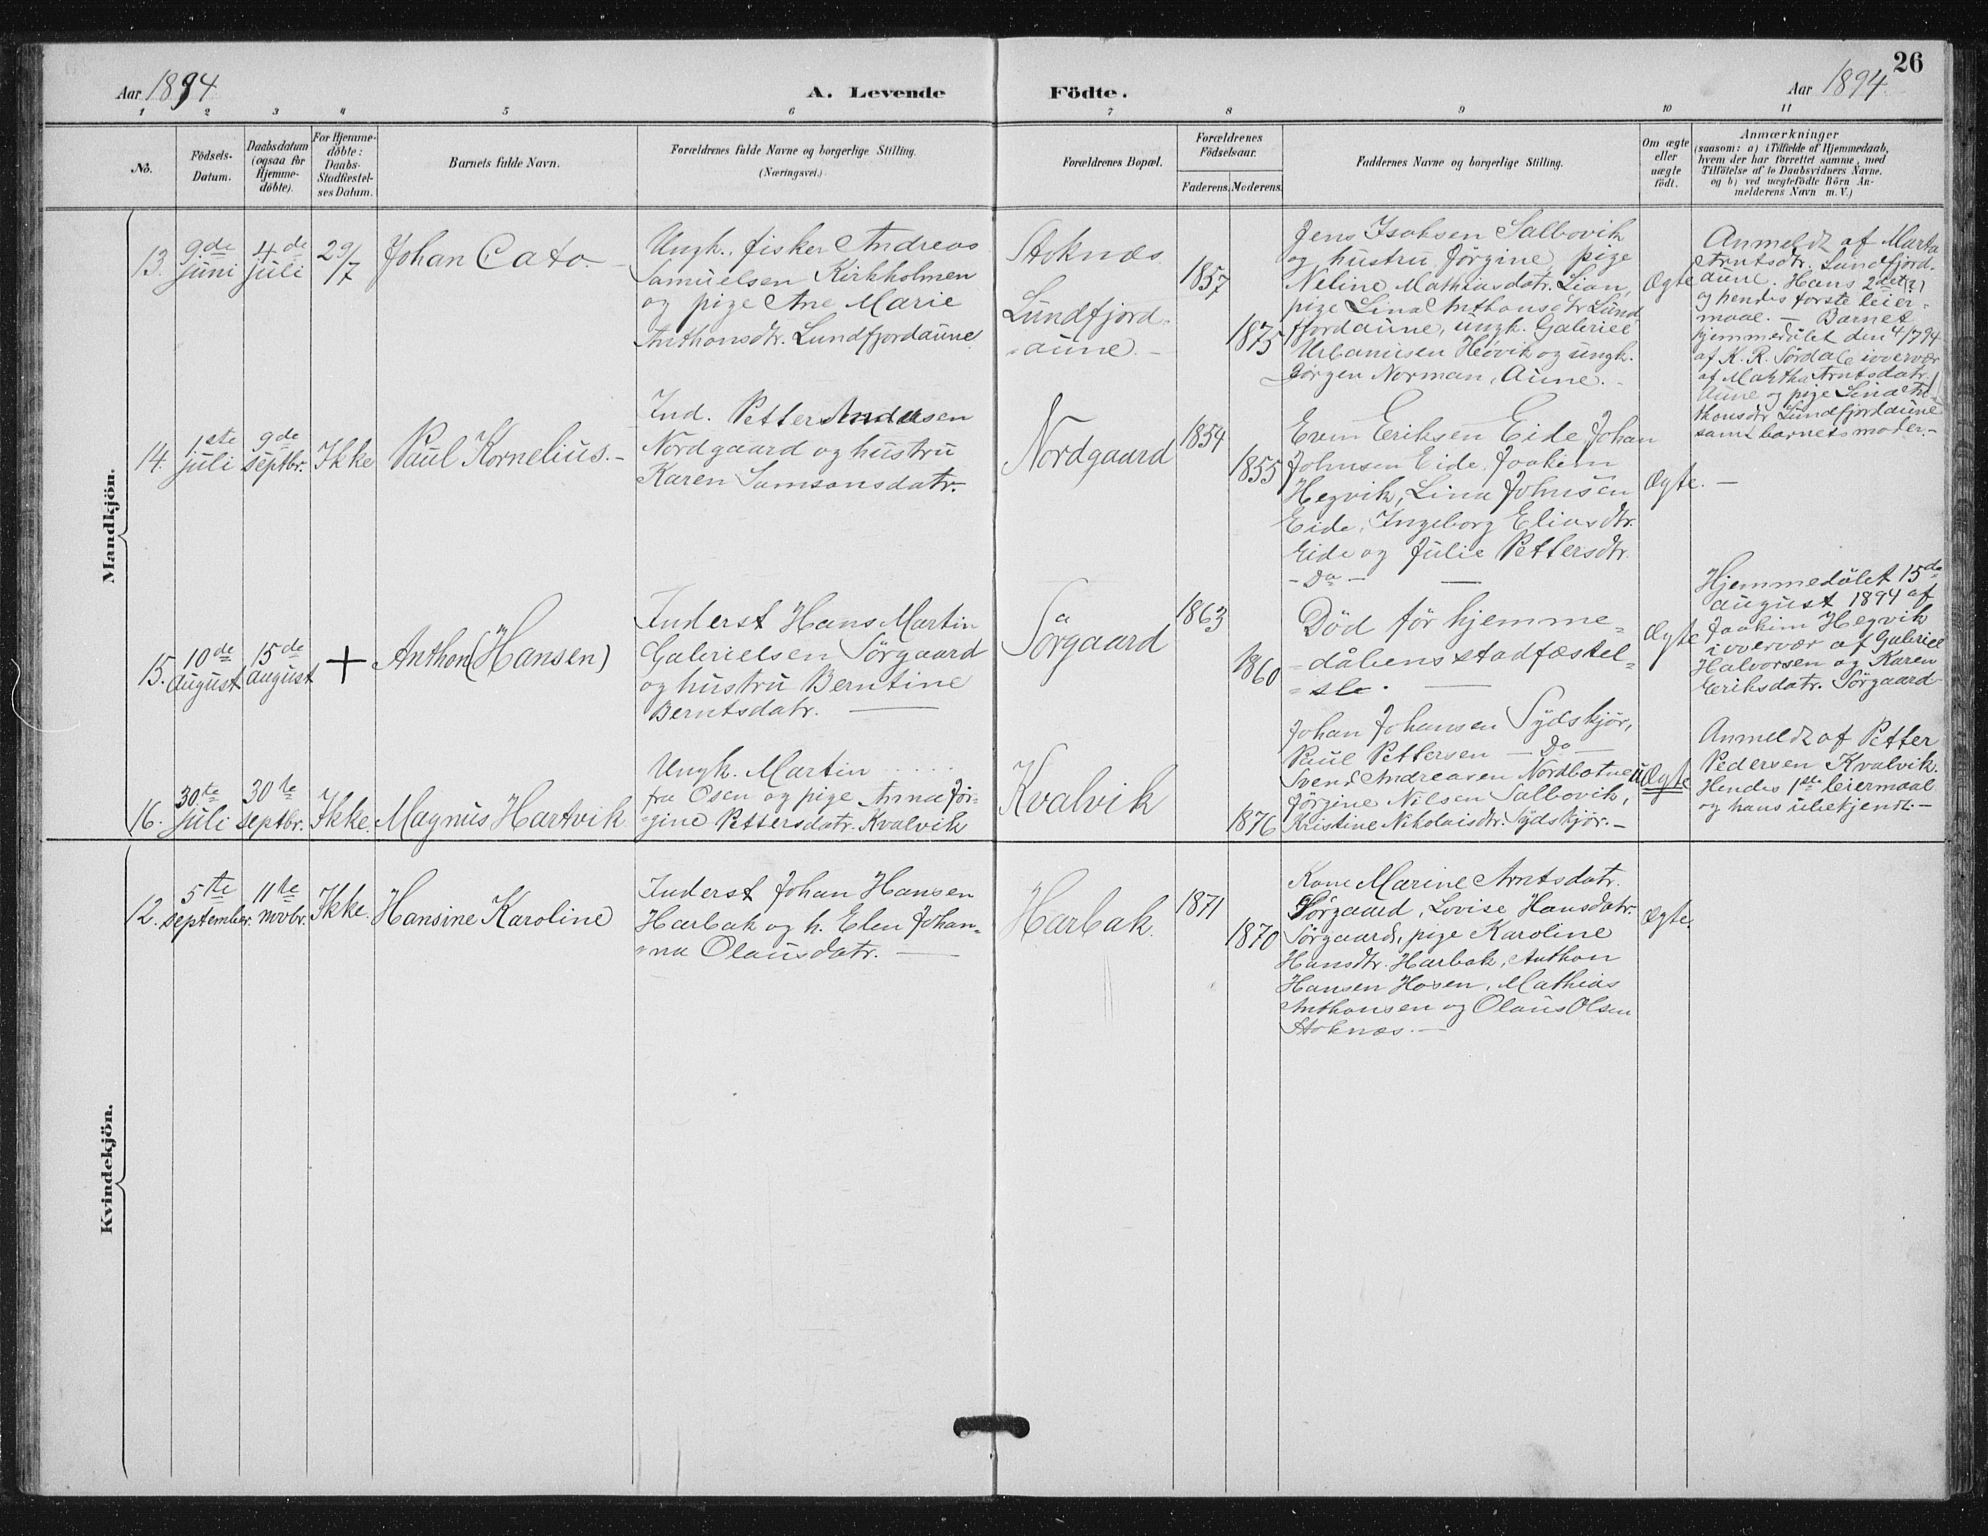 26
Aar 1894
A. Levende
Födte.
Aar 1894.
1 2 3 4 5 6 7 8 9 10 11
No.
Födsels-
Datum.
Daabsdatum
(ogsaa for
Hjemme-
döbte).
For Hjemme-
döbte:
Daabs-
Stadfæstel-
ses Datum.
Barnets fulde Navn.
Forældrenes fulde Navne og borgerlige Stilling.
(Næringsvei.)
Forældrenes Bopæl.
Forældrenes
Födselsaar.
Faderens.
Moderens.
Faddernes Navne og borgerlige Stilling.
Om ægte
eller
uægte
födt.
Anmærkninger
(saasom: a) i Tilfælde af Hjemmedaab,
hvem der har forrettet samme, med
Tilföielse af to Daabsvidners Navne.
og b) ved uægtefödte Börn An-
melderens Navn m. V.)
Mandkjön.
13.
9de
juni
4de
juli
29/7
Johan Cato.
Ungk., fisker Andreas
Samuelsen Kirkholmen
og pige Ane Marie
Anthonsdtr. Lundfjordaune
Stoknæs
Lundfjord-
aune.
1857
1875
Jens Isaksen Salbovik
og hustru Jørgine, pige
Neline Mathiasdatr. Lian,
pige Lina Anthonsdtr Lund
fjordaune, ungk. Gabriel
Urbanusen Høvik og ungk.
Jørgen Norman, Aune.
Ægte
Anmeldt af Marta
Arntsdtr. Lundfjord-
aune. Hans 2det (?)
og hendes første leier-
maal. — Barnet
hjemmedøbt den 4/7 94
af K. R. Sørdal i overvær
af Martha Arntsdatr.
Aune og pige Lina An-
thonsdtr Lundfjordaune
samt barnets moder.
14.
1ste
juli
9de
septbr.
Ikke
Paul Kornelius.
Ind. Petter Andersen
Nordgaard og hustru
Karen Samsonsdatr.
Nordgaard
1854
1855
Even Eriksen Eide, Johan
Johnsen Eide, Joakim
Hegvik, Lina Johnsen
Eide, Ingeborg Eliasdtr.
Eide og Julie Pettersdtr.
- Do -
Ægte. —
15.
10de
August
15de
august
+
Anthon (Hansen)
Inderst Hans Martin
Gabrielsen Sørgaard
og hustru Berntine
Berntsdatr.
Sørgaard
1863
1860
Død før hjemme-
dåbens stadfæstel-
se.
Ægte
Hjemmedøbt 15de
august 1894 af
Joakim Hegvik
i overvær af Gabriel
Halvorsen og Karen
Eriksdatr. Sørgaard
16.
30te
juli
30te
septbr.
Ikke.
Magnus Hartvik
Ungk. Martin .....
fra Osen og pige Anna Jør-
gine Pettersdatr. Kvalvik
Kvalvik
1876
Johan Johansen Sydskjør,
Paul Pettersen — Do —
Svend Andreasen Nordbotnen
Jørgine Nilsen Salbovik,
Kristine Nikolaisdtr. Sydskjør.
uægte
Anmeldt af Petter
Pedersen Kvalvik.
Hendes 1ste leiermaal
og hans ubekjendt.
Kvindekjön.
12.
5te
september
11te
novbr.
Ikke.
Hansine Karoline
Inderst Johan Hansen
Harbak og h. Elen Johan-
na Olausdatr.
Harbak.
1871
1870
Kone Marine Arntsdatr.
Sørgaard, Lovise Hansdatr.
Sørgaard, pige Karoline
Hansdtr. Harbak, Anthon
Hansen Hosen, Mathias
Anthonsen og Olaus Olsen
Stoknæs.
ægte.